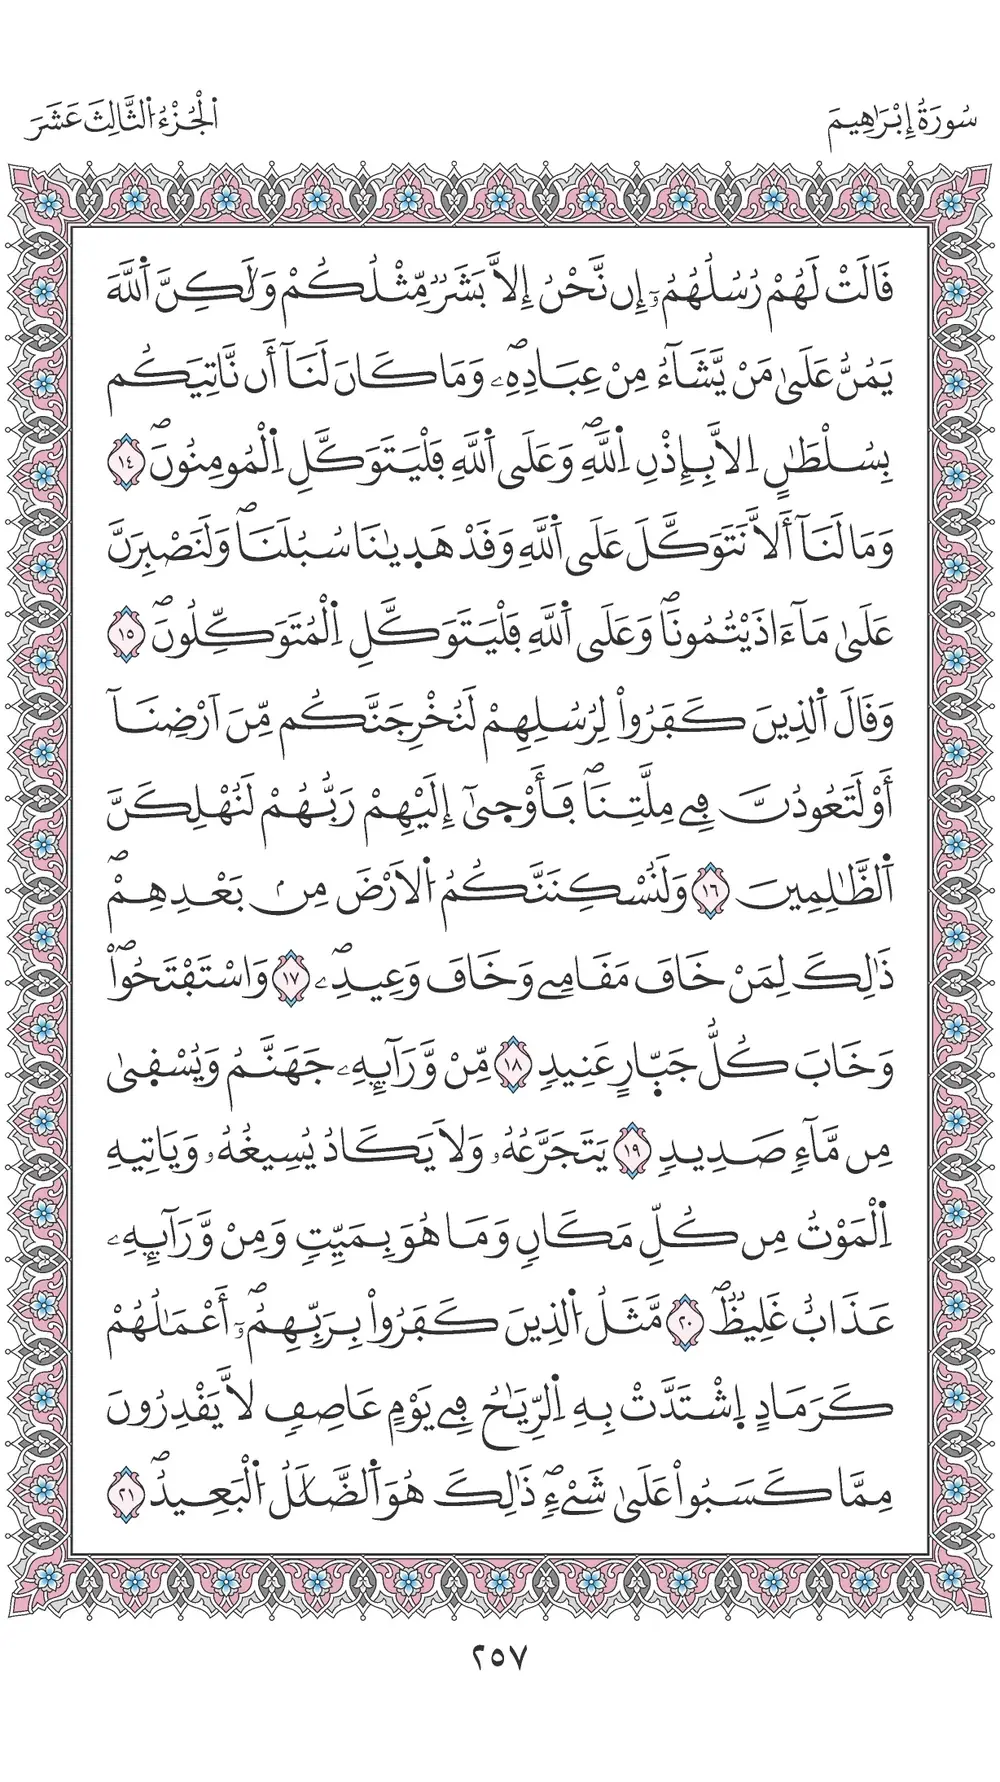 سُورَةُ إِبْرَاهِيمَ
اَلْجُزْءُ اُلثَّالِثَ عَشَرَ
قَالَتْ لَهُمْ رُسُلُهُمُۥٓ إِن نَّحْنُ إِلَّا بَشَرٞ مِّثْلُكُمْ وَلَٰكِنَّ اَ۬للَّهَ
يَمُنُّ عَلَىٰ مَنْ يَّشَآءُ مِنْ عِبَادِهِۦۖ وَمَا كَانَ لَنَآ أَن نَّاتِيَكُم
بِسُلْطَٰنٍ اِلَّا بِإِذْنِ اِ۬للَّهِۖ وَعَلَى اَ۬للَّهِ فَلْيَتَوَكَّلِ اِ۬لْمُومِنُونَۖ ١٤
وَمَا لَنَآ أَلَّا نَتَوَكَّلَ عَلَى اَ۬للَّهِ وَقَدْ هَدِيٰنَا سُبُلَنَاۖ وَلَنَصْبِرَنَّ
عَلَىٰ مَآ ءَاذَيْتُمُونَاۖ وَعَلَى اَ۬للَّهِ فَلْيَتَوَكَّلِ اِ۬لْمُتَوَكِّلُونَۖ ١٥
وَقَالَ اَ۬لذِينَ كَفَرُواْ لِرُسُلِهِمْ لَنُخْرِجَنَّكُم مِّنَ اَرْضِنَآ
أَوْ لَتَعُودُنَّ فِے مِلَّتِنَاۖ فَأَوْحَىٰٓ إِلَيْهِمْ رَبُّهُمْ لَنُهْلِكَنَّ
اَ۬لظَّٰلِمِينَ ١٦ وَلَنُسْكِنَنَّكُمُ اُ۬لَارْضَ مِنۢ بَعْدِهِمْۖ
ذَٰلِكَ لِمَنْ خَافَ مَقَامِے وَخَافَ وَعِيدِۦۖ ١٧ وَاسْتَفْتَحُواْۖ
وَخَابَ كُلُّ جَبّ۪ارٍ عَنِيدٖ ١٨ مِّنْ وَّرَآئِهِۦ جَهَنَّمُ وَيُسْقَىٰ
مِن مَّآءٖ صَدِيدٖ ١٩ يَتَجَرَّعُهُۥ وَلَا يَكَادُ يُسِيغُهُۥ وَيَاتِيهِ
اِ۬لْمَوْتُ مِن كُلِّ مَكَانٖ وَمَا هُوَ بِمَيِّتٖ وَمِنْ وَّرَآئِهِۦ
عَذَابٌ غَلِيظٞۖ ٢٠ مَّثَلُ اُ۬لذِينَ كَفَرُواْ بِرَبِّهِمُۥٓۖ أَعْمَٰلُهُمْ
كَرَمَادٍ اِ۪شْتَدَّتْ بِهِ اِ۬لرِّيَٰحُ فِے يَوْمٍ عَاصِفٖ لَّا يَقْدِرُونَ
مِمَّا كَسَبُواْ عَلَىٰ شَےْءٖۖ ذَٰلِكَ هُوَ اَ۬لضَّلَٰلُ اُ۬لْبَعِيدُۖ ٢١
٢٥٧